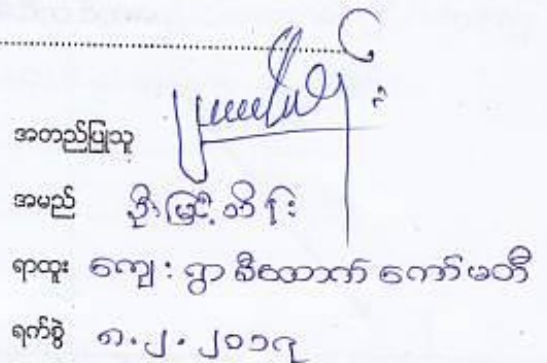 အတည်ပြုသူ
အမည် ဦးမြင့်သိန်း
ရာထူး ကျေးရွာစီထောက်ကော်မတီ
ရက်စွဲ ၈.၂.၂၀၁၇